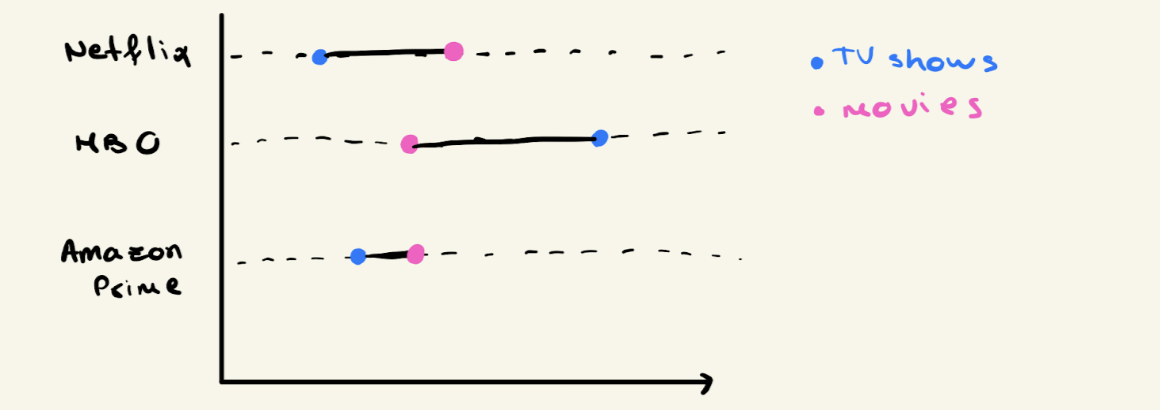 Netflix
HBO
Amazon
Prime
TV shows
movies